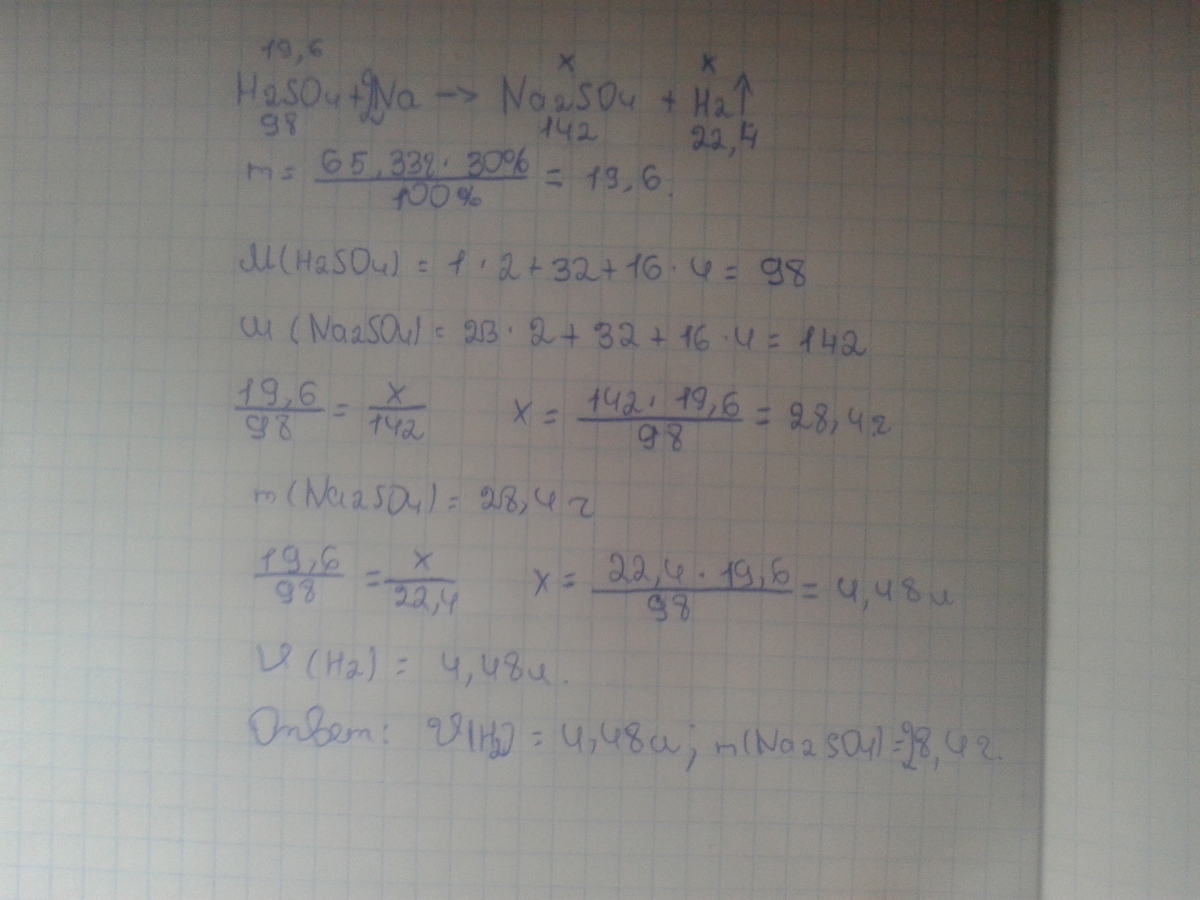 19,6 x x
H2SO4 + 2Na → Na2SO4 + H2↑
98 142 22,4
m = 65,33г · 30% / 100% = 19,6.
M(H2SO4) = 1 · 2 + 32 + 16 · 4 = 98
M(Na2SO4) = 23 · 2 + 32 + 16 · 4 = 142
19,6/98 = x/142 x = 142 · 19,6 / 98 = 28,4г
m(Na2SO4) = 28,4 г
19,6/98 = x/22,4 x = 22,4 · 19,6 / 98 = 4,48л
V(H2) = 4,48л.
Ответ: V(H2) = 4,48л; m(Na2SO4) = 28,4 г.